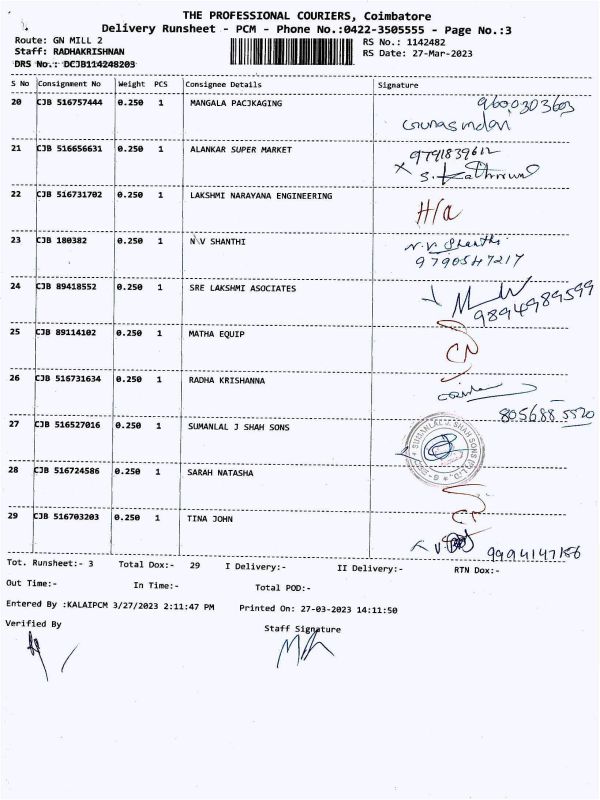 THE PROFESSIONAL COURIERS, Coimbatore
Delivery Runsheet - PCM - Phone No.:0422-3505555 - Page No.:3
Route: GN MILL 2 RS No.: 1142482
Staff: RADHAKRISHNAN RS Date: 27-Mar-2023
DRS No.: DCJB114248203
S No Consignment No Weight PCS Consignee Details Signature
20 CJB 516757444 0.250 1 MANGALA PACJKAGING 9600303603
21 CJB 516656631 0.250 1 ALANKAR SUPER MARKET 9791839612
22 CJB 516731702 0.250 1 LAKSHMI NARAYANA ENGINEERING
23 CJB 180382 0.250 1 N V SHANTHI N.V Shanthi
9790547217
24 CJB 89418552 0.250 1 SRE LAKSHMI ASOCIATES
9894989599
25 CJB 89114102 0.250 1 MATHA EQUIP
26 CJB 516731634 0.250 1 RADHA KRISHANNA
805688 5520
27 CJB 516527016 0.250 1 SUMANLAL J SHAH SONS
28 CJB 516724586 0.250 1 SARAH NATASHA
29 CJB 516703203 0.250 1 TINA JOHN
9994147186
Tot. Runsheet:- 3 Total Dox:- 29 I Delivery:- II Delivery:- RTN Dox:-
Out Time:- In Time:- Total POD:-
Entered By :KALAIPCM 3/27/2023 2:11:47 PM Printed On: 27-03-2023 14:11:50
Verified By Staff Signature